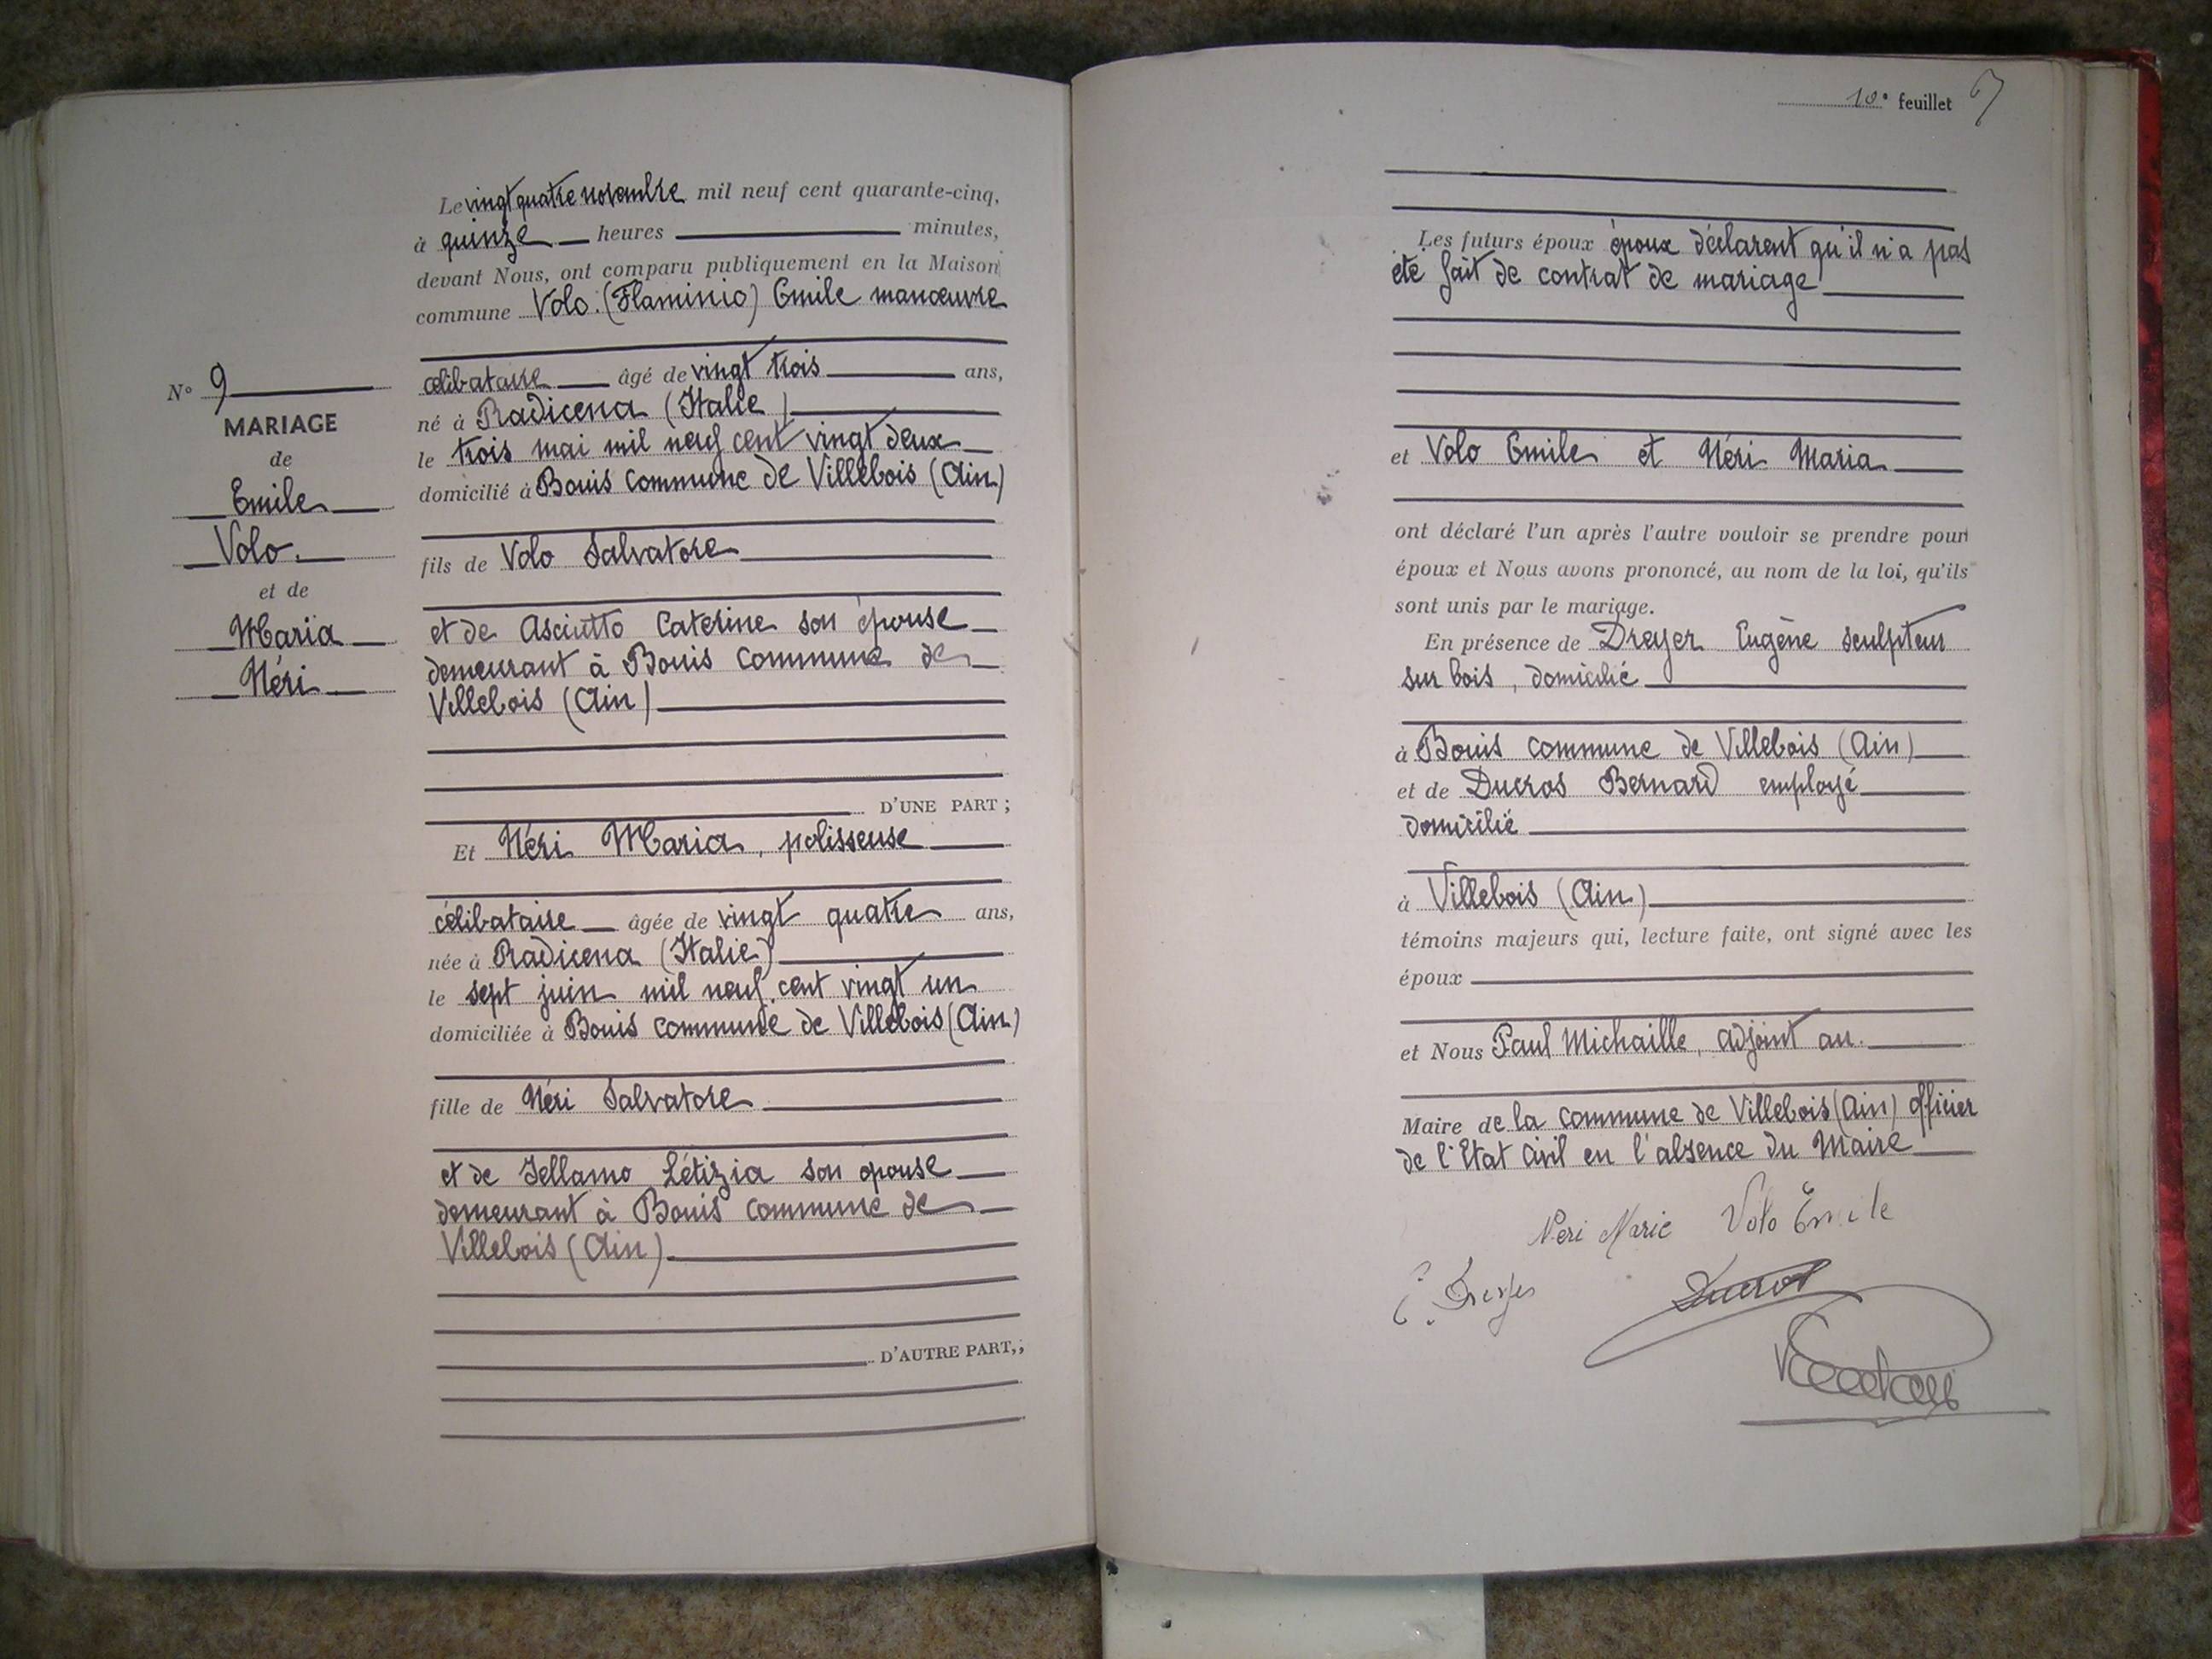 N° 9
MARIAGE
de
Emile
Volo.
et de
Maria
Néri
Le vingt quatre novembre mil neuf cent quarante-cinq,
à quinze heures minutes,
devant Nous, ont comparu publiquement en la Maison
commune Volo. (Flaminio) Emile manœuvre
célibataire âgé de vingt trois ans,
né à Radicena (Italie)
le trois mai mil neuf cent vingt deux
domicilié à Bouis commune de Villebois (Ain)
fils de Volo Salvatore
et de Asciutto Caterine son épouse
demeurant à Bouis commune de
Villebois (Ain)
D'UNE PART ;
Et Néri Maria, polisseuse
célibataire âgée de vingt quatre ans,
née à Radicena (Italie)
le sept juin mil neuf cent vingt un
domiciliée à Bouis commune de Villebois (Ain)
fille de Néri Salvatore
et de Jellamo Létizia son épouse
demeurant à Bouis commune de
Villebois (Ain)
D'AUTRE PART,;
10e feuillet
Les futurs époux époux déclarent qu'il n'a pas
été fait de contrat de mariage
et Volo Emile et Néri Maria
ont déclaré l'un après l'autre vouloir se prendre pour
époux et Nous avons prononcé, au nom de la loi, qu'ils
sont unis par le mariage.
En présence de Dreyer Eugène sculpteur
sur bois, domicilié
à Bouis commune de Villebois (Ain)
et de Ducros Bernard employé
domicilié
à Villebois (Ain)
témoins majeurs qui, lecture faite, ont signé avec les
époux
et Nous Paul Michaille, adjoint au.
Maire de la commune de Villebois (Ain) officier
de l'Etat Civil en l'absence du Maire
Neri Marie Volo Emile
E. Dreyer Ducros